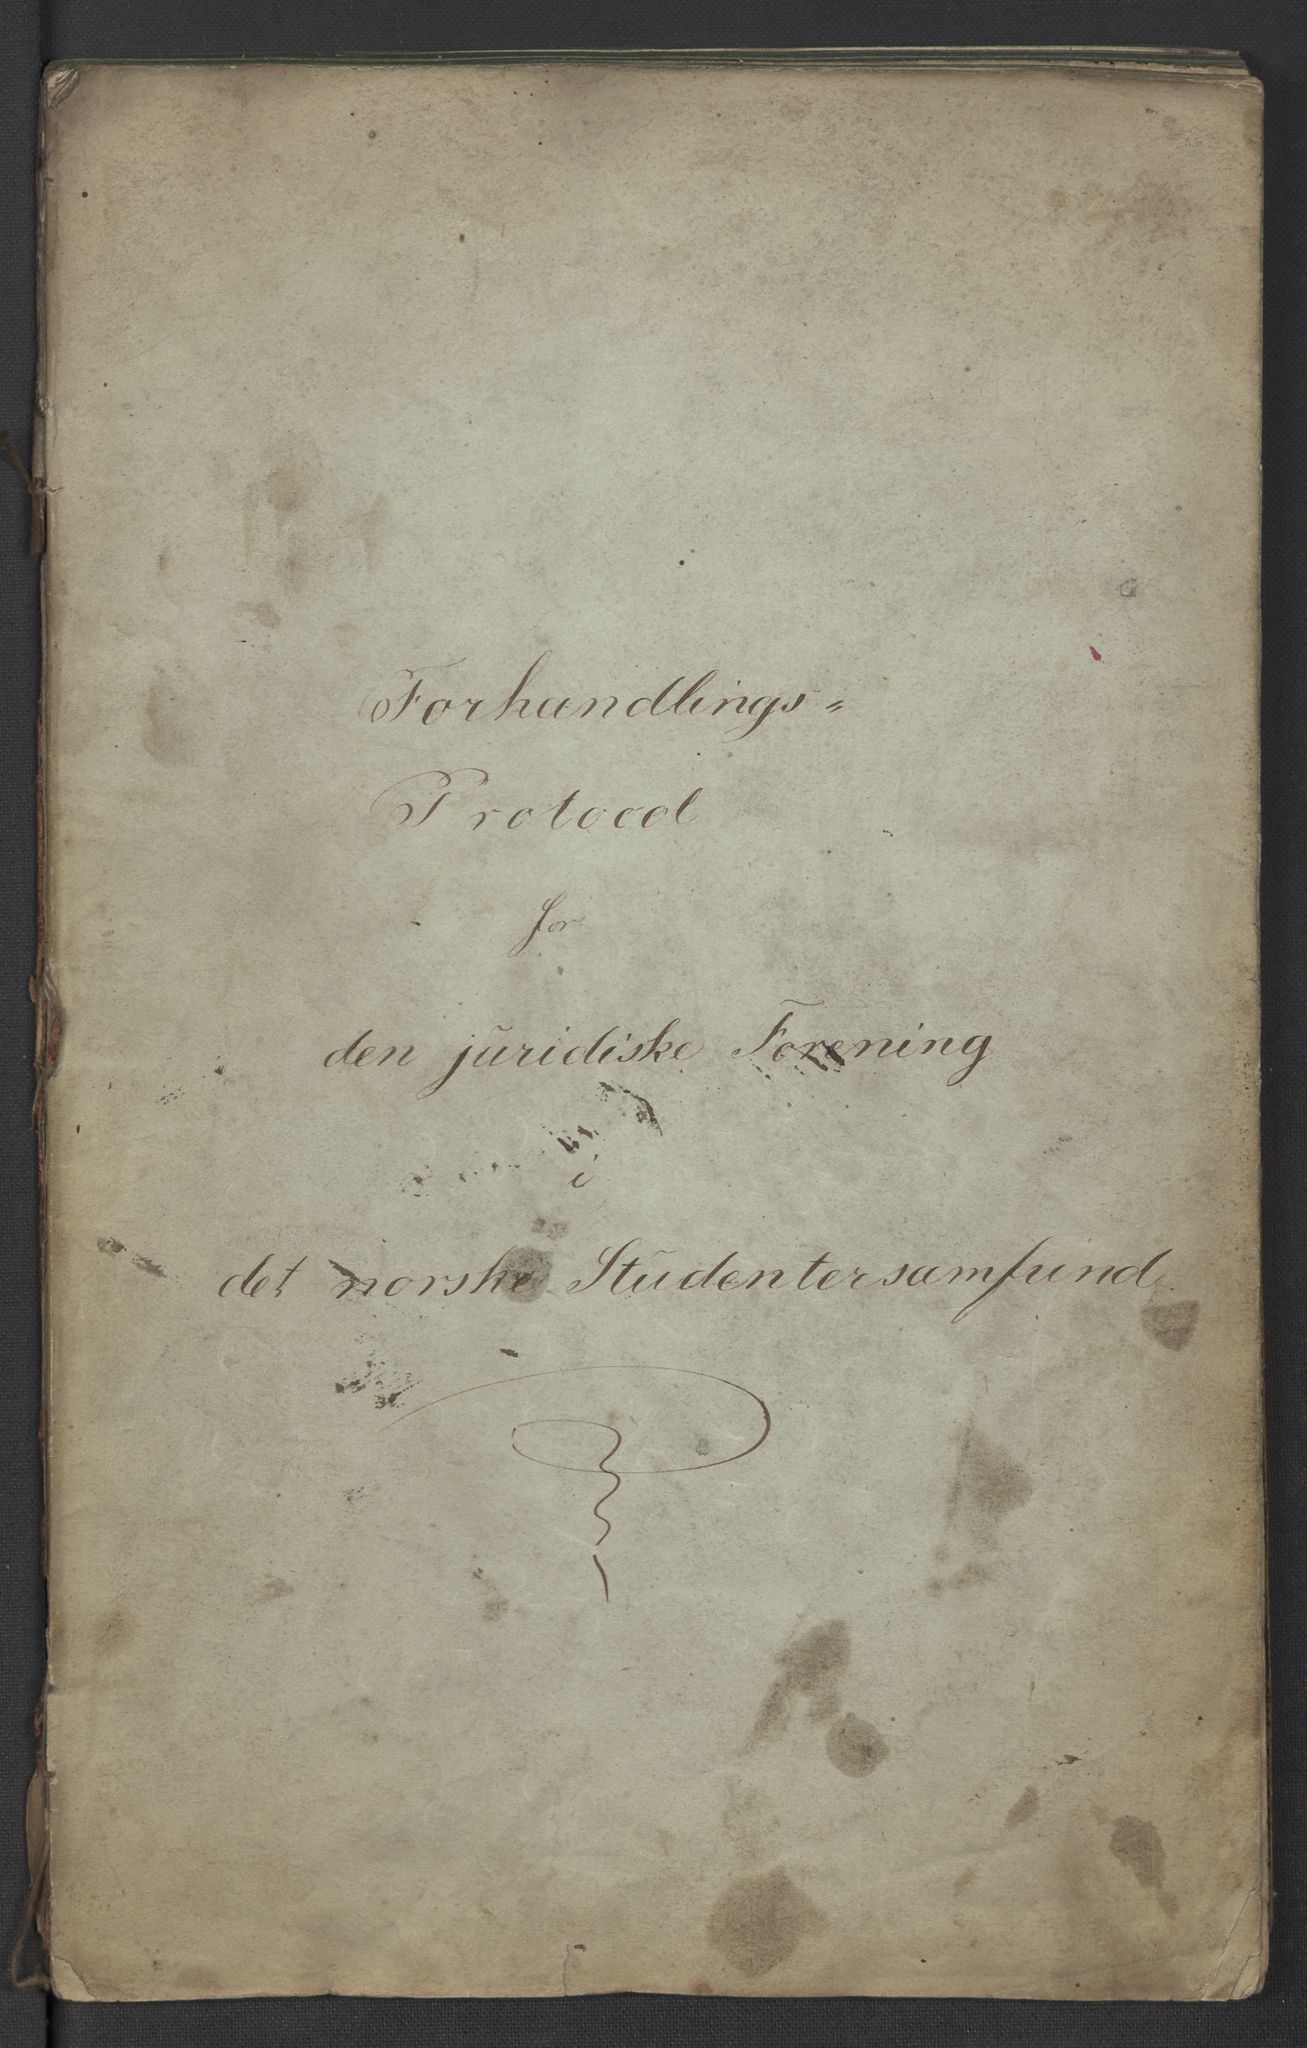 Forhandlings=
Protocol
for
den juridiske Forening
i
det norske Studentersamfund